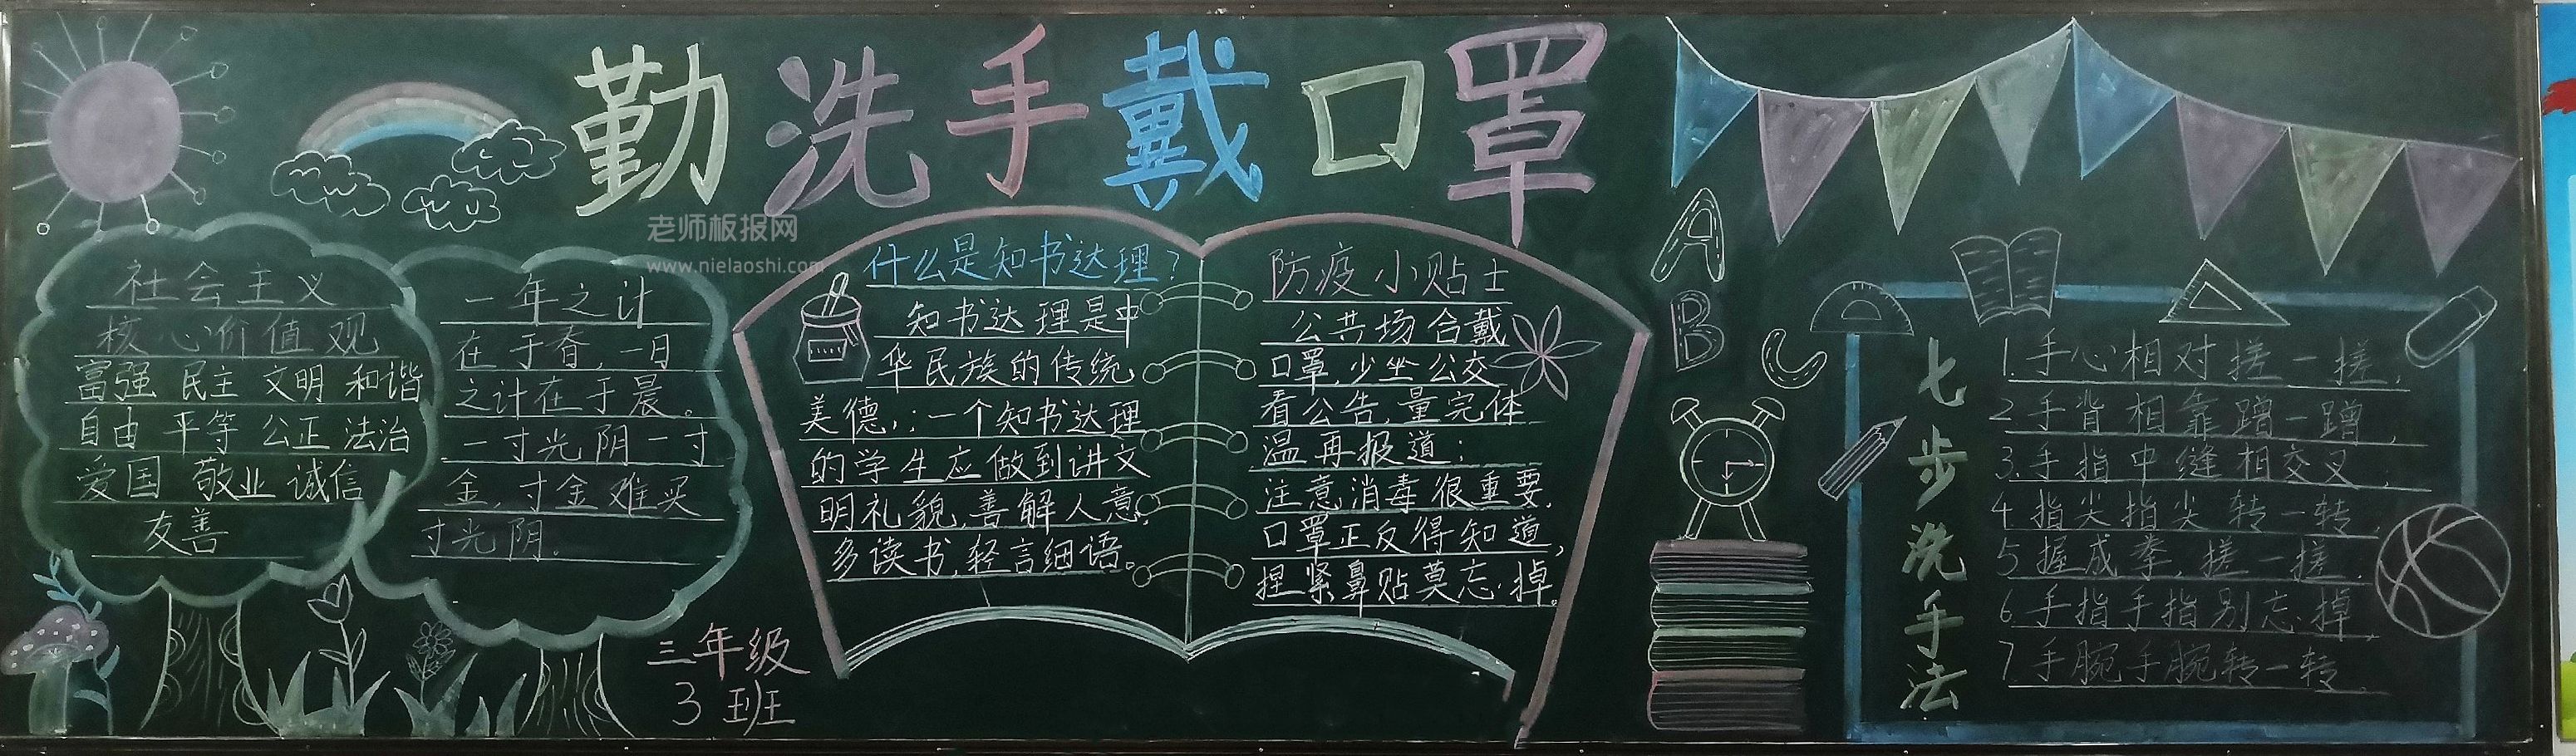 勤洗手戴口罩
老师板报网
www.nielaoshi.com
社会主义
核心价值观
富强 民主 文明 和谐
自由 平等 公正 法治
爱国 敬业 诚信
友善
一年之计
在于春,一日
之计在于晨。
一寸光阴一寸
金,寸金难买
寸光阴.
什么是知书达理?
知书达理是中
华民族的传统
美德,:一个知书达理
的学生应做到讲文
明礼貌,善解人意,
多读书,轻言细语。
防疫小贴士
公共场合戴
口罩,少坐公交
看公告,量完体
温再报道;
注意消毒很重要,
口罩正反得知道,
捏紧鼻贴莫忘掉。
三年级
3班
A
B
C
七步洗手法
1.手心相对搓一搓,
2手背相靠蹭一蹭,
3.手指中缝相交叉,
4指尖指尖转一转,
5握成拳,搓一搓,
6.手指手指别忘掉,
7.手腕手腕转一转。